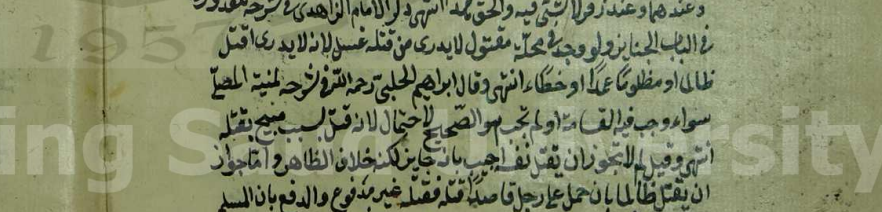 وعندهما وعند زفر لا شئ فيه والحق محمد انتهى وذكر الامام الزاهدى فى شرحه للقدورى
فى الباب الجنايز ولو وجد فى محلة مقتول لا يدرى من قتله غسل لانه لا يدرى اقتل
ظالما او مظلوما عمدا او خطاء انتهى وقال ابراهيم الحلبى رحمه الله فى شرحه لمنية المصلى
سواء وجب فيه القسامة او لم تجب هو الصحيح لاحتمال انه قتل بسبب مبيح بقتله
انتهى وقيل لم لا تجوز ان يقتل نفسا اجيب بانه جايز لكنه خلاف الظاهر واما جواز
ان يقتل ظالما بان حمل على رجل قاصدا قتله فقتله غير مدفوع والدفع بان المسلم
1957
ing S University